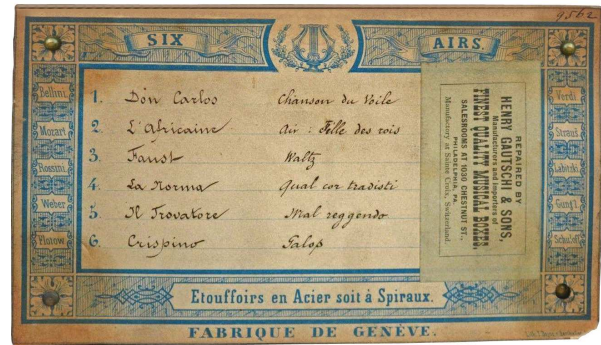 9562
SIX AIRS.
Bellini.
Mozart
Rossini.
Weber
Flotow
1. Don Carlos Chanson du Voile
2. L'Africaine Air : Fille des rois
3. Faust Waltz
4. La Norma Qual cor tradisti
5. Il Trovatore Mal reggendo
6. Crispino Galop
REPAIRED BY
HENRY GAUTSCHI & SONS,
Manufacturers and Importers of
FINEST QUALITY MUSICAL BOXES,
SALESROOMS AT 1030 CHESTNUT ST.,
PHILADELPHIA, PA.
Manufactory at Sainte Croix, Switzerland.
Verdi
Strauß
Labitzki
Gungl.
Schubert
Etouffoirs en Acier soit à Spiraux.
FABRIQUE DE GENÈVE.